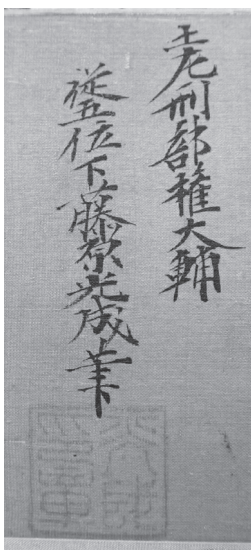 土左刑部權大輔
從五位下藤原光成筆